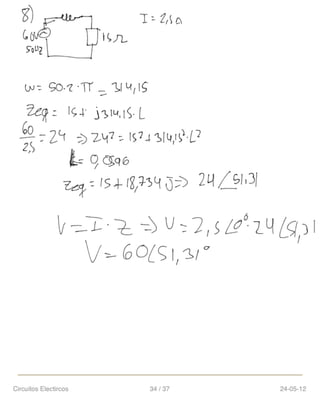 8)
I = 2,5 a
60V
50Hz
15Ω
w = 50.2.π = 314,15
Zeq = 15 + j314,15.L
60/2,5 = 24 => 24² = 15² + 314,15².L²
L = 0,0596
Zeq = 15 + 18,734 j => 24 ∠51,31
V = I . Z => V = 2,5∠0° . 24∠51,31
V = 60∠51,31°
Circuitos Electircos 34 / 37 24-05-12